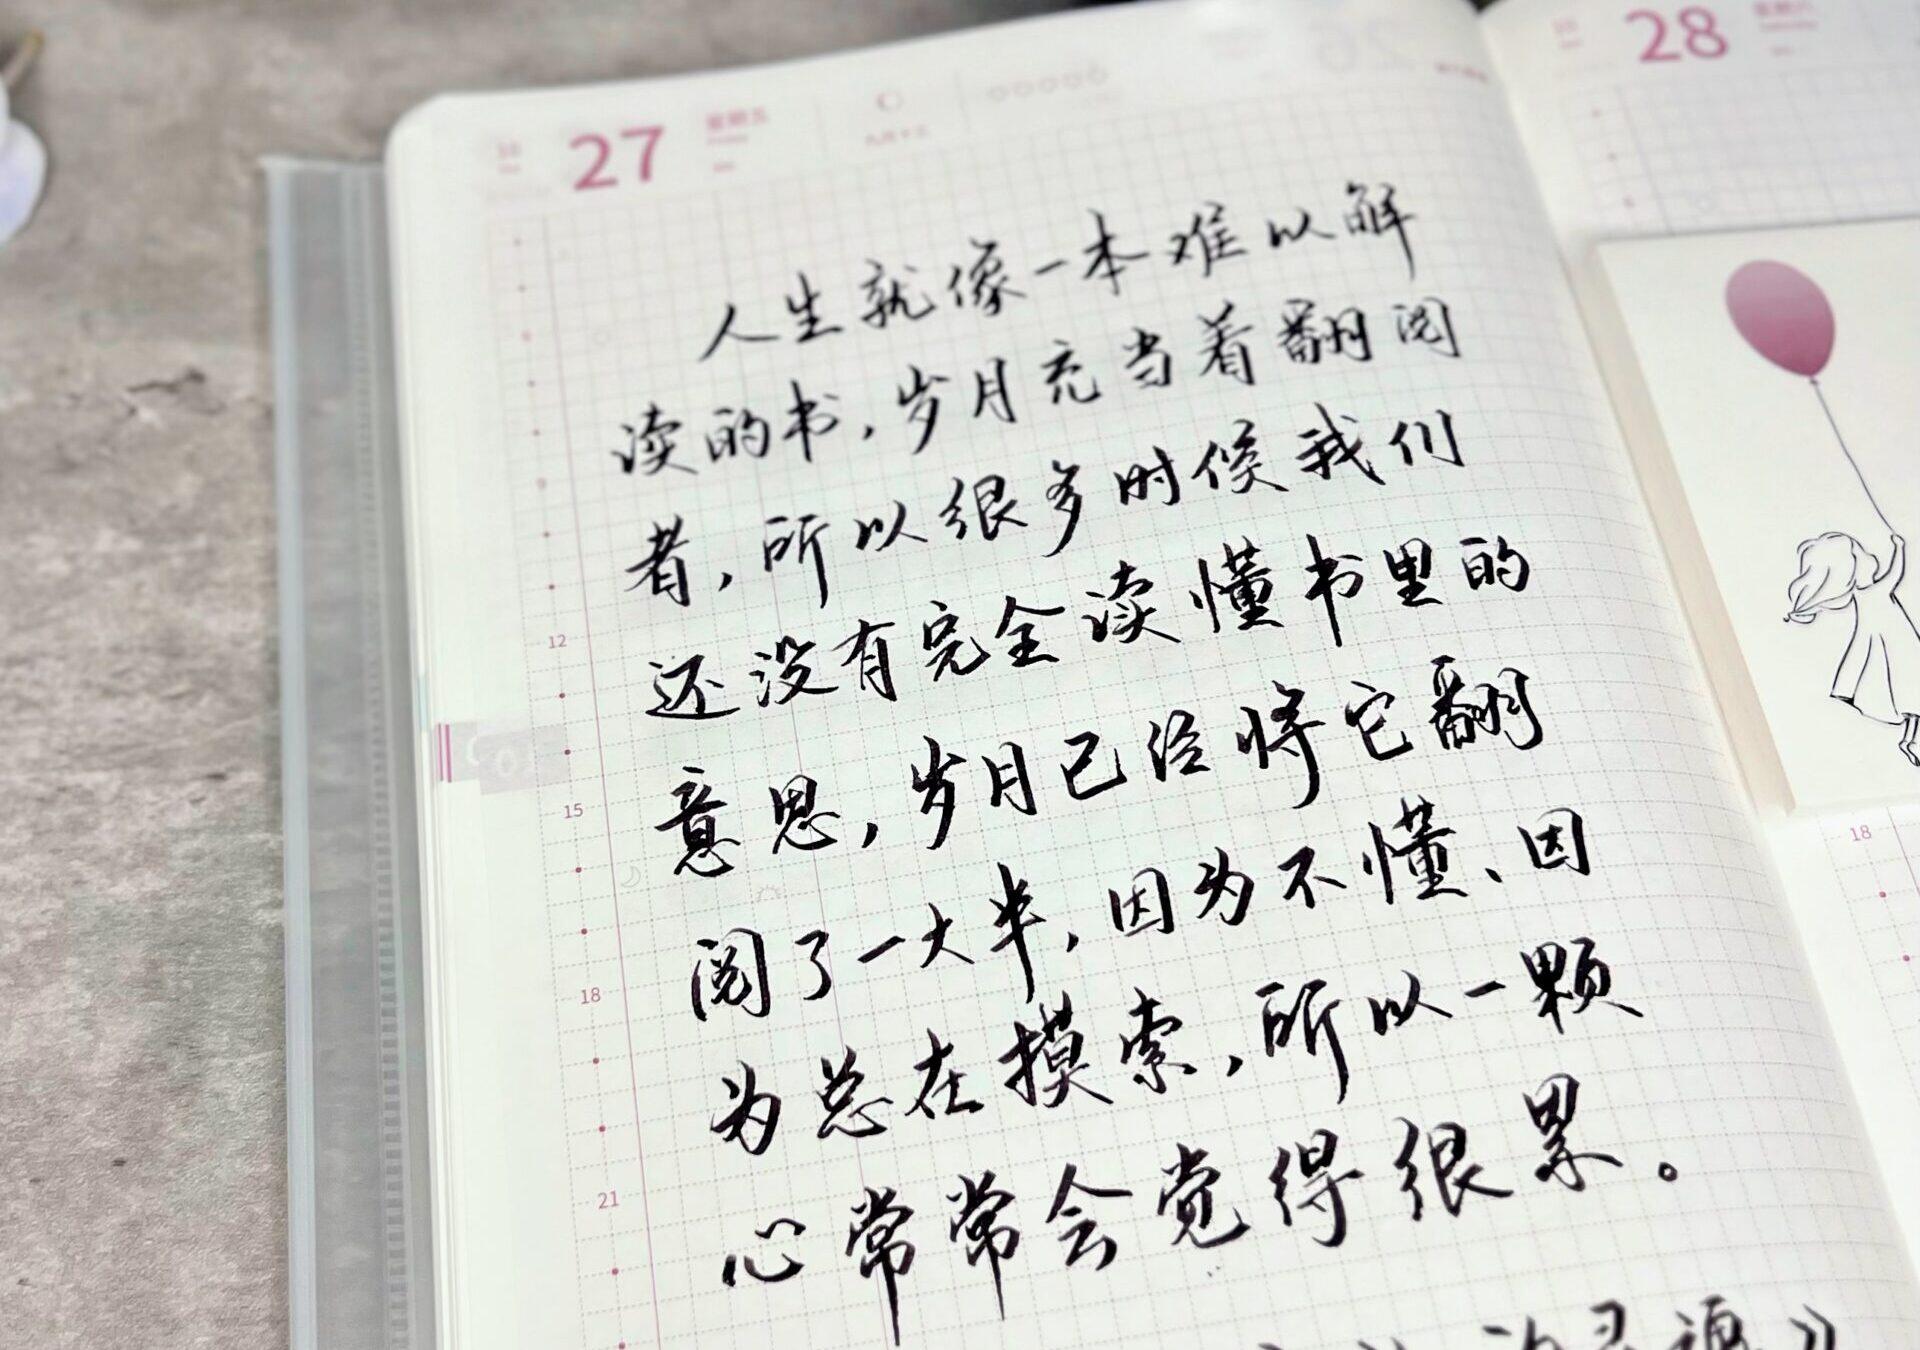 10 27 星期五
28
人生就像一本难以解
读的书,岁月充当着翻阅
者,所以很多时候我们
还没有完全读懂书里的
意思,岁月已经将它翻
阅了一大半,因为不懂、因
为总在摸索,所以一颗
心常常会觉得很累。
12
15
18
21
18